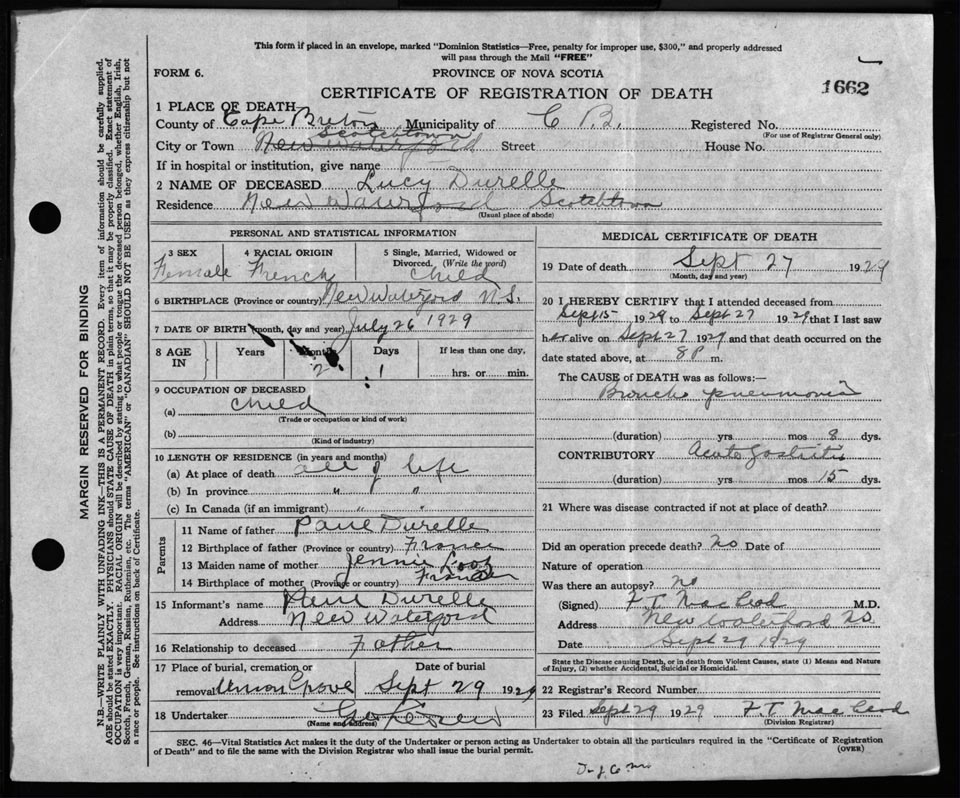 This form if placed in an envelope, marked "Dominion Statistics—Free, penalty for improper use, $300," and properly addressed
will pass through the Mail "FREE"
FORM 6.
PROVINCE OF NOVA SCOTIA
CERTIFICATE OF REGISTRATION OF DEATH
1662
1 PLACE OF DEATH
County of Cape Breton Municipality of C B. Registered No.
(For use of Registrar General only)
Scotchtown
City or Town New Waterford Street House No.
If in hospital or institution, give name
2 NAME OF DECEASED Lucy Durelle
Residence New Waterford Scotchtown
(Usual place of abode)
PERSONAL AND STATISTICAL INFORMATION
3 SEX 4 RACIAL ORIGIN 5 Single, Married, Widowed or
Divorced. (Write the word)
Female French Child
6 BIRTHPLACE (Province or country) New Waterford N.S.
7 DATE OF BIRTH (month, day and year) July 26 1929
8 AGE IN Years Months Days If less than one day,
2 1 hrs. or min.
9 OCCUPATION OF DECEASED
(a) Child
(Trade or occupation or kind of work)
(b)
(Kind of industry)
10 LENGTH OF RESIDENCE (in years and months)
(a) At place of death all of life
(b) In province " "
(c) In Canada (if an immigrant) " "
Parents
11 Name of father Paul Durelle
12 Birthplace of father (Province or country) France
13 Maiden name of mother Jennie
14 Birthplace of mother (Province or country) France
15 Informant's name Paul Durelle
Address New Waterford
16 Relationship to deceased Father
17 Place of burial, cremation or Date of burial
removal Union Grove Sept 29 1929
18 Undertaker
(Name and address)
MEDICAL CERTIFICATE OF DEATH
19 Date of death Sept 27 1929
(Month, day and year)
20 I HEREBY CERTIFY that I attended deceased from
Sept 15 1929 to Sept 27 1929 that I last saw
her alive on Sept 27 1929 and that death occurred on the
date stated above, at 8 P m.
The CAUSE of DEATH was as follows:—
Broncho pneumonia
(duration) yrs mos 8 dys.
CONTRIBUTORY Acute Gastritis
(duration) yrs mos 15 dys.
21 Where was disease contracted if not at place of death?
Did an operation precede death? No Date of
Nature of operation
Was there an autopsy? no
(Signed) F. T. MacLeod M.D.
Address New Waterford NS
Date Sept 29 1929
State the Disease causing Death, or in death from Violent Causes, state (1) Means and Nature
of Injury, (2) whether Accidental, Suicidal or Homicidal.
22 Registrar's Record Number
23 Filed Sept 29 1929 F. T. MacLeod
(Division Registrar)
SEC. 46—Vital Statistics Act makes it the duty of the Undertaker or person acting as Undertaker to obtain all the particulars required in the "Certificate of Registration
of Death" and to file the same with the Division Registrar who shall issue the burial permit.
(OVER)
MARGIN RESERVED FOR BINDING
N.B.—WRITE PLAINLY WITH UNFADING INK—THIS IS A PERMANENT RECORD. Every item of information should be carefully supplied.
AGE should be stated EXACTLY. PHYSICIANS should STATE CAUSE OF DEATH in plain terms, so that it may be properly classified. Exact statement of
OCCUPATION is very important. RACIAL ORIGIN will be described by stating to what people or tongue the deceased person belonged, whether English, Irish,
Scotch, French, German, Russian, Ruthenian, etc. The terms "AMERICAN" or "CANADIAN" SHOULD NOT BE USED as they express citizenship but not
a race or people. See instructions on back of Certificate.